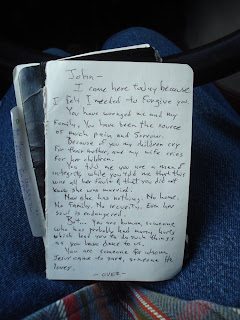 John -
I come here today because
I felt I needed to forgive you.
You have wronged me and my
Family. You have been the source
of much pain and sorrow.
Because of you my children cry
for their mother, and my wife cries
for her children.
You told me you are a man of
integrity while you told me that this
was all her fault & that you did not
know she was married.
Now she has nothing. No home,
No family. No security. Even her
soul is endangered.
But... You are human, someone
who has probably had many hurts
which lead you to do such things
as you have done to us.
You are someone for whom
Jesus came to save, someone He
loves.
- OVER -